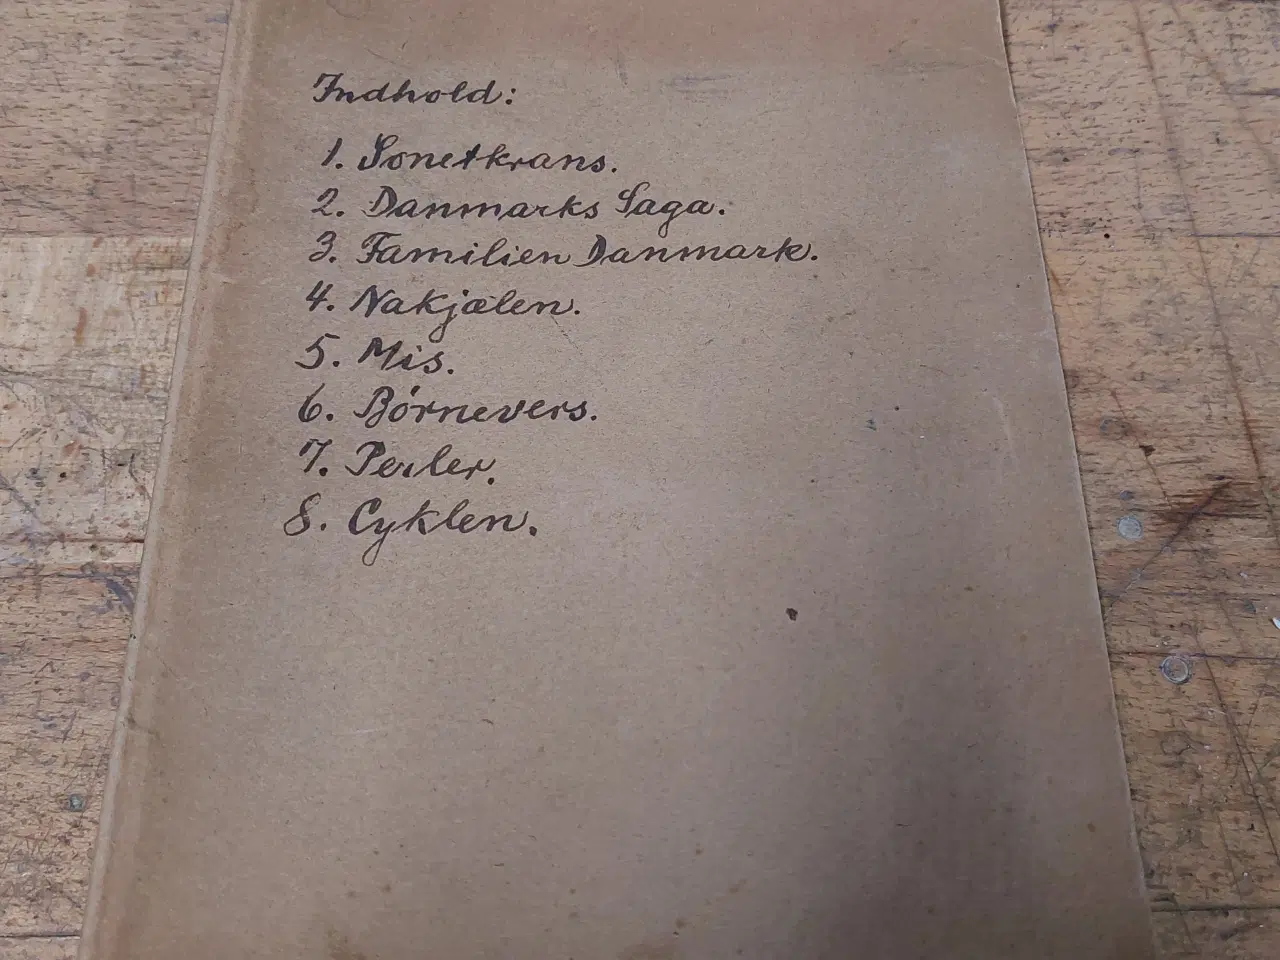 Indhold:
1. Sonetkrans.
2. Danmarks Saga.
3. Familien Danmark.
4. Nakjælen.
5. Mis.
6. Børnevers.
7. Perler.
8. Cyklen.